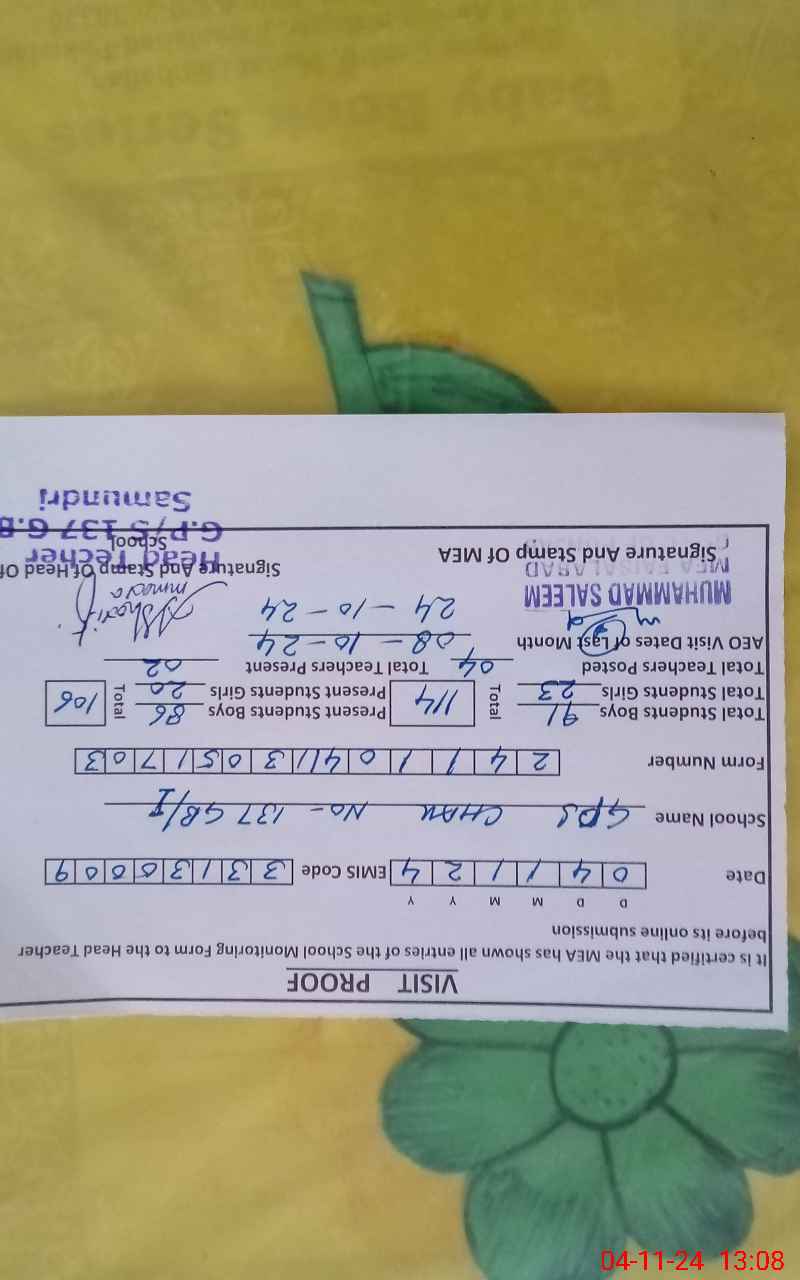 VISIT PROOF
It is certified that the MEA has shown all entries of the School Monitoring Form to the Head Teacher
before its online submission
D D M M Y Y
Date 0 4 1 1 2 4 EMIS Code 3 3 1 3 0 0 0 9
School Name GPS CHAK NO - 137 GB/I
Form Number 2 4 1 1 0 4 1 1 3 0 5 1 7 0 3
Total Students Boys 91 Total 114 Present Students Boys 86 Total 106
Total Students Girls 23 Present Students Girls 20
Total Teachers Posted 04 Total Teachers Present 02
AEO Visit Dates of Last Month 08 - 10 - 24
24 - 10 - 24
MUHAMMAD SALEEM
MEA FAISALABAD
Signature And Stamp Of MEA
Signature And Stamp Of Head Of
School
Head Techer
G.P/S 137 G.B
Samundri
04-11-24 13:08